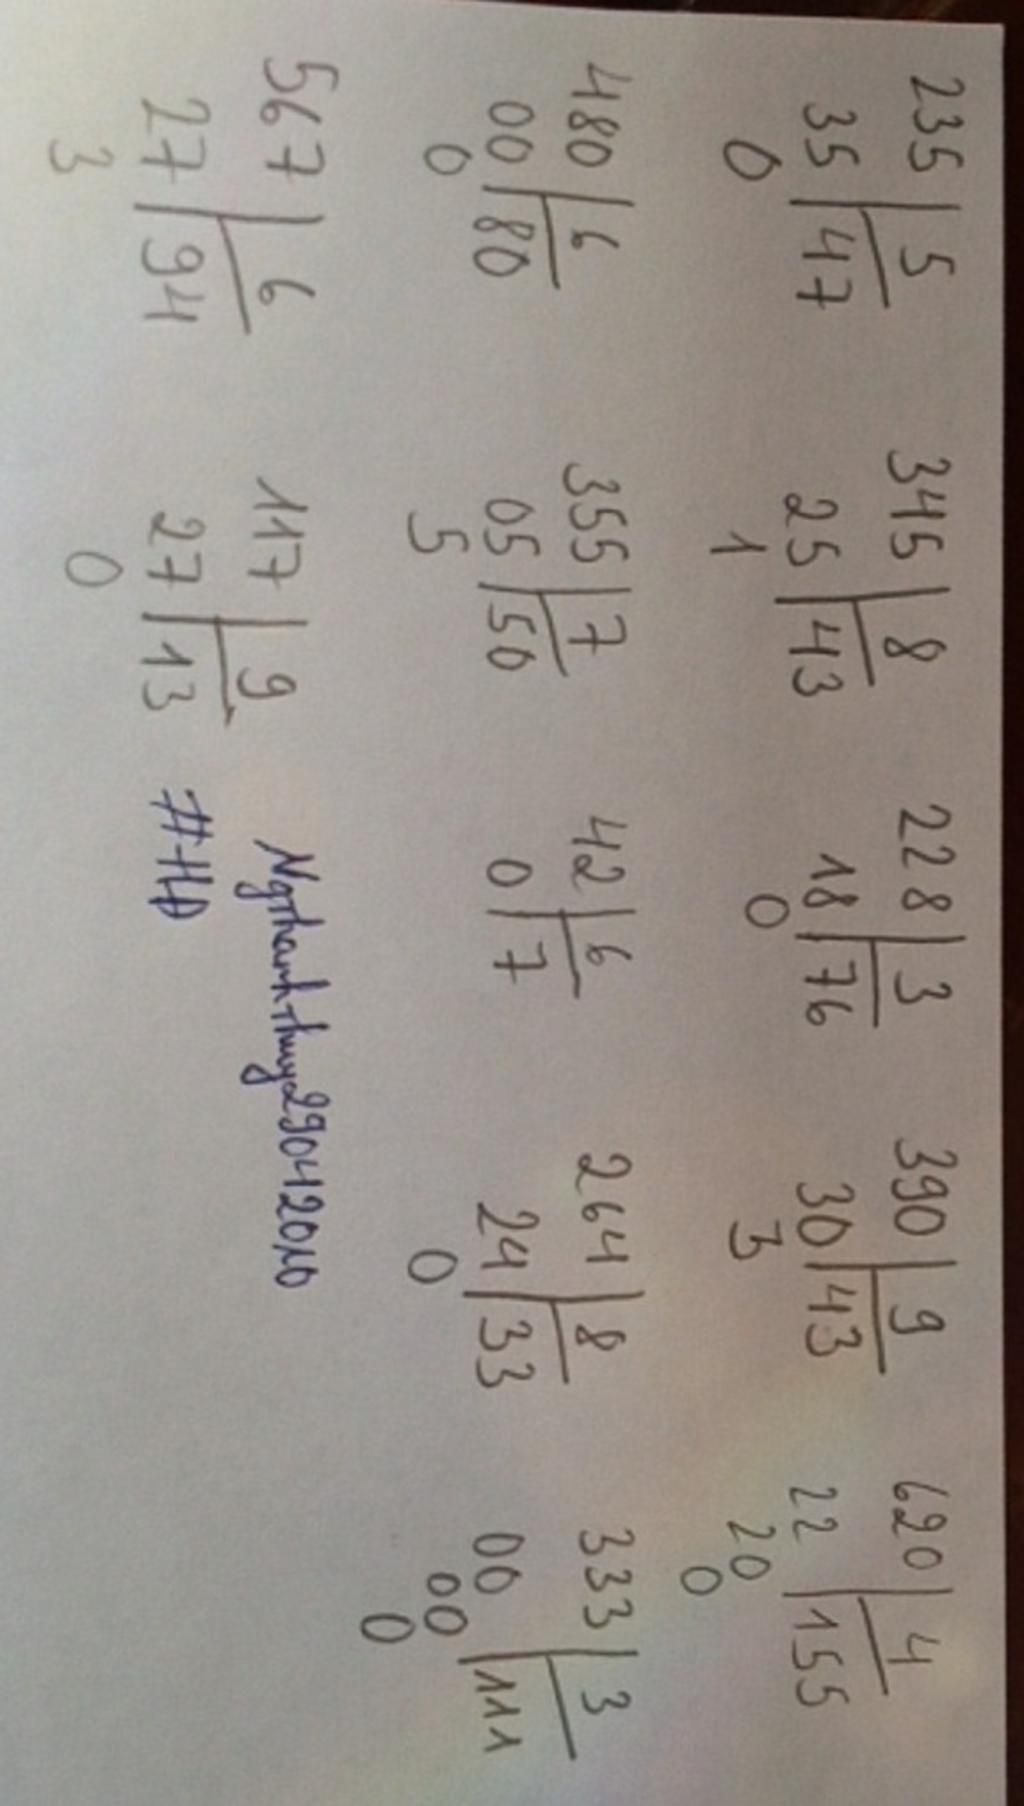 235 | 5 345 | 8 228 | 3 390 | 9 620 | 4
35 | 47 25 | 43 18 | 76 30 | 43 22 | 155
0 1 0 3 20
0
480 | 6 355 | 7 42 | 6 264 | 8 333 | 3
00 | 80 05 | 50 0 | 7 24 | 33 00 | 111
0 5 0 00
0
567 | 6 117 | 9
27 | 94 27 | 13 #HD
3 0